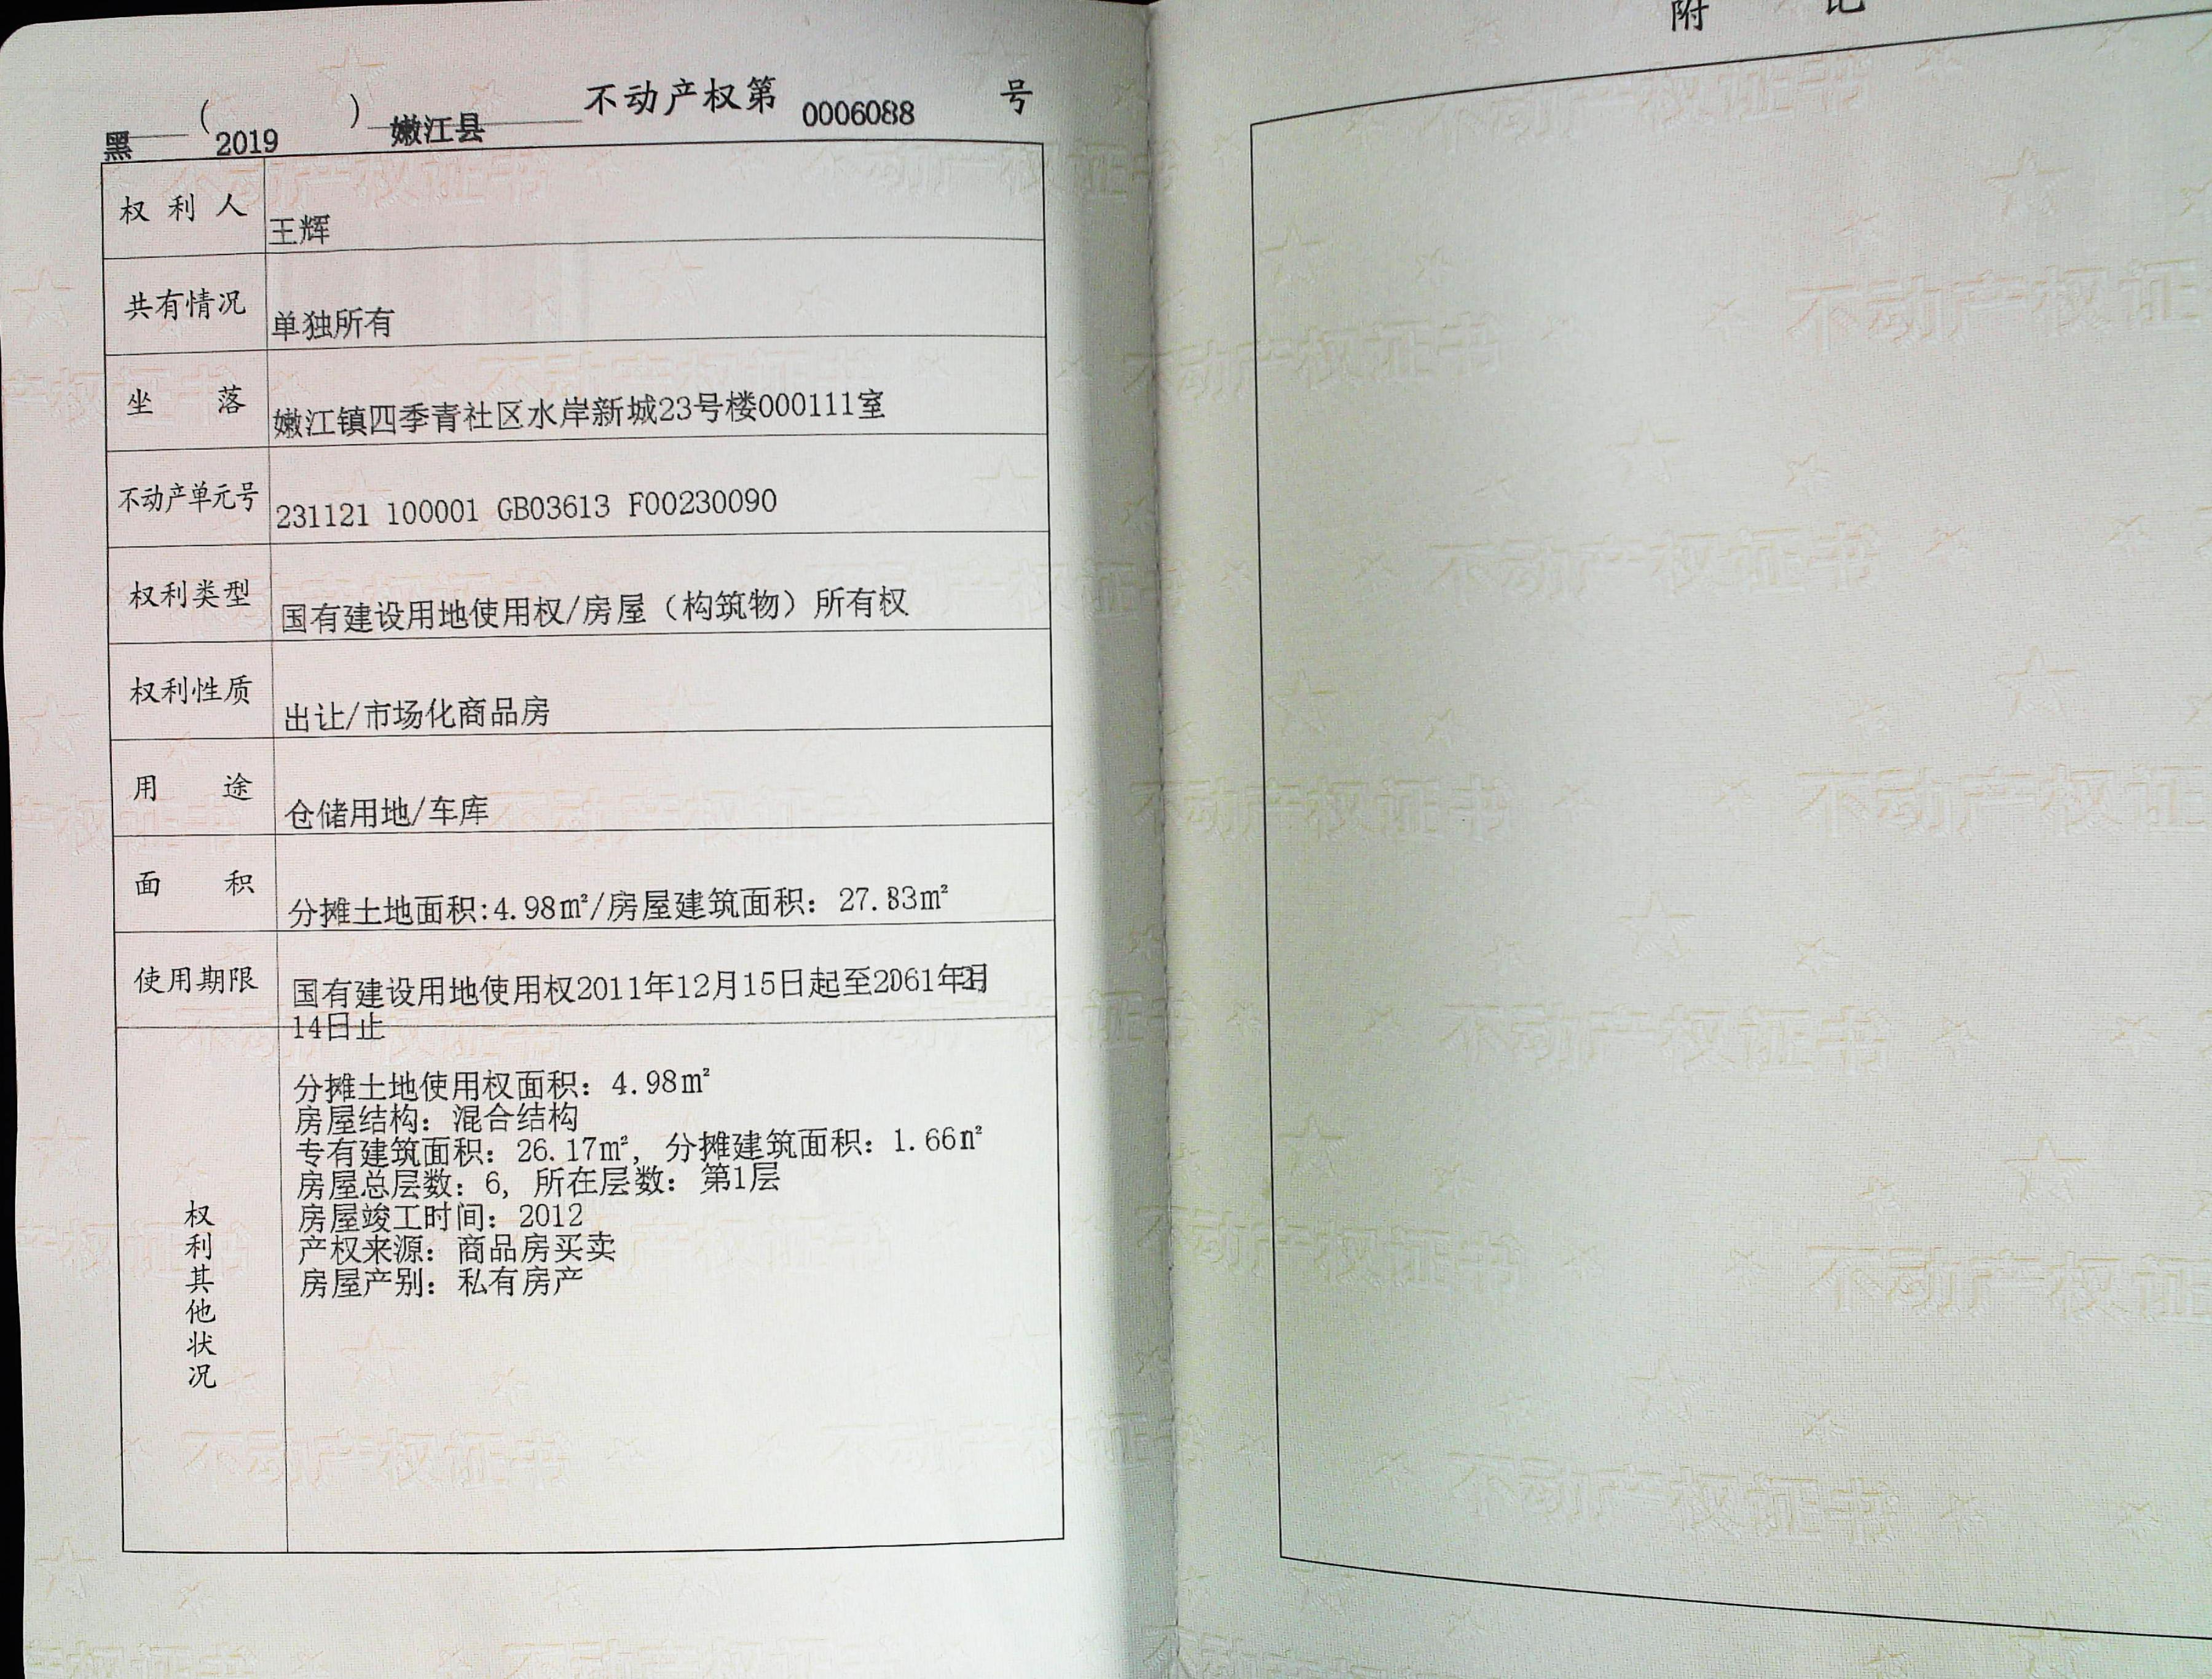 黑（2019）嫩江县 不动产权第 0006088 号
权利人 王辉
共有情况 单独所有
坐落 嫩江镇四季青社区水岸新城23号楼000111室
不动产单元号 231121 100001 GB03613 F00230090
权利类型 国有建设用地使用权/房屋（构筑物）所有权
权利性质 出让/市场化商品房
用途 仓储用地/车库
面积 分摊土地面积:4.98㎡/房屋建筑面积：27.83㎡
使用期限 国有建设用地使用权2011年12月15日起至2061年月
14日止
权利其他状况
分摊土地使用权面积：4.98㎡
房屋结构：混合结构
专有建筑面积：26.17㎡，分摊建筑面积：1.66㎡
房屋总层数：6，所在层数：第1层
房屋竣工时间：2012
产权来源：商品房买卖
房屋产别：私有房产
附记
不动产权证书